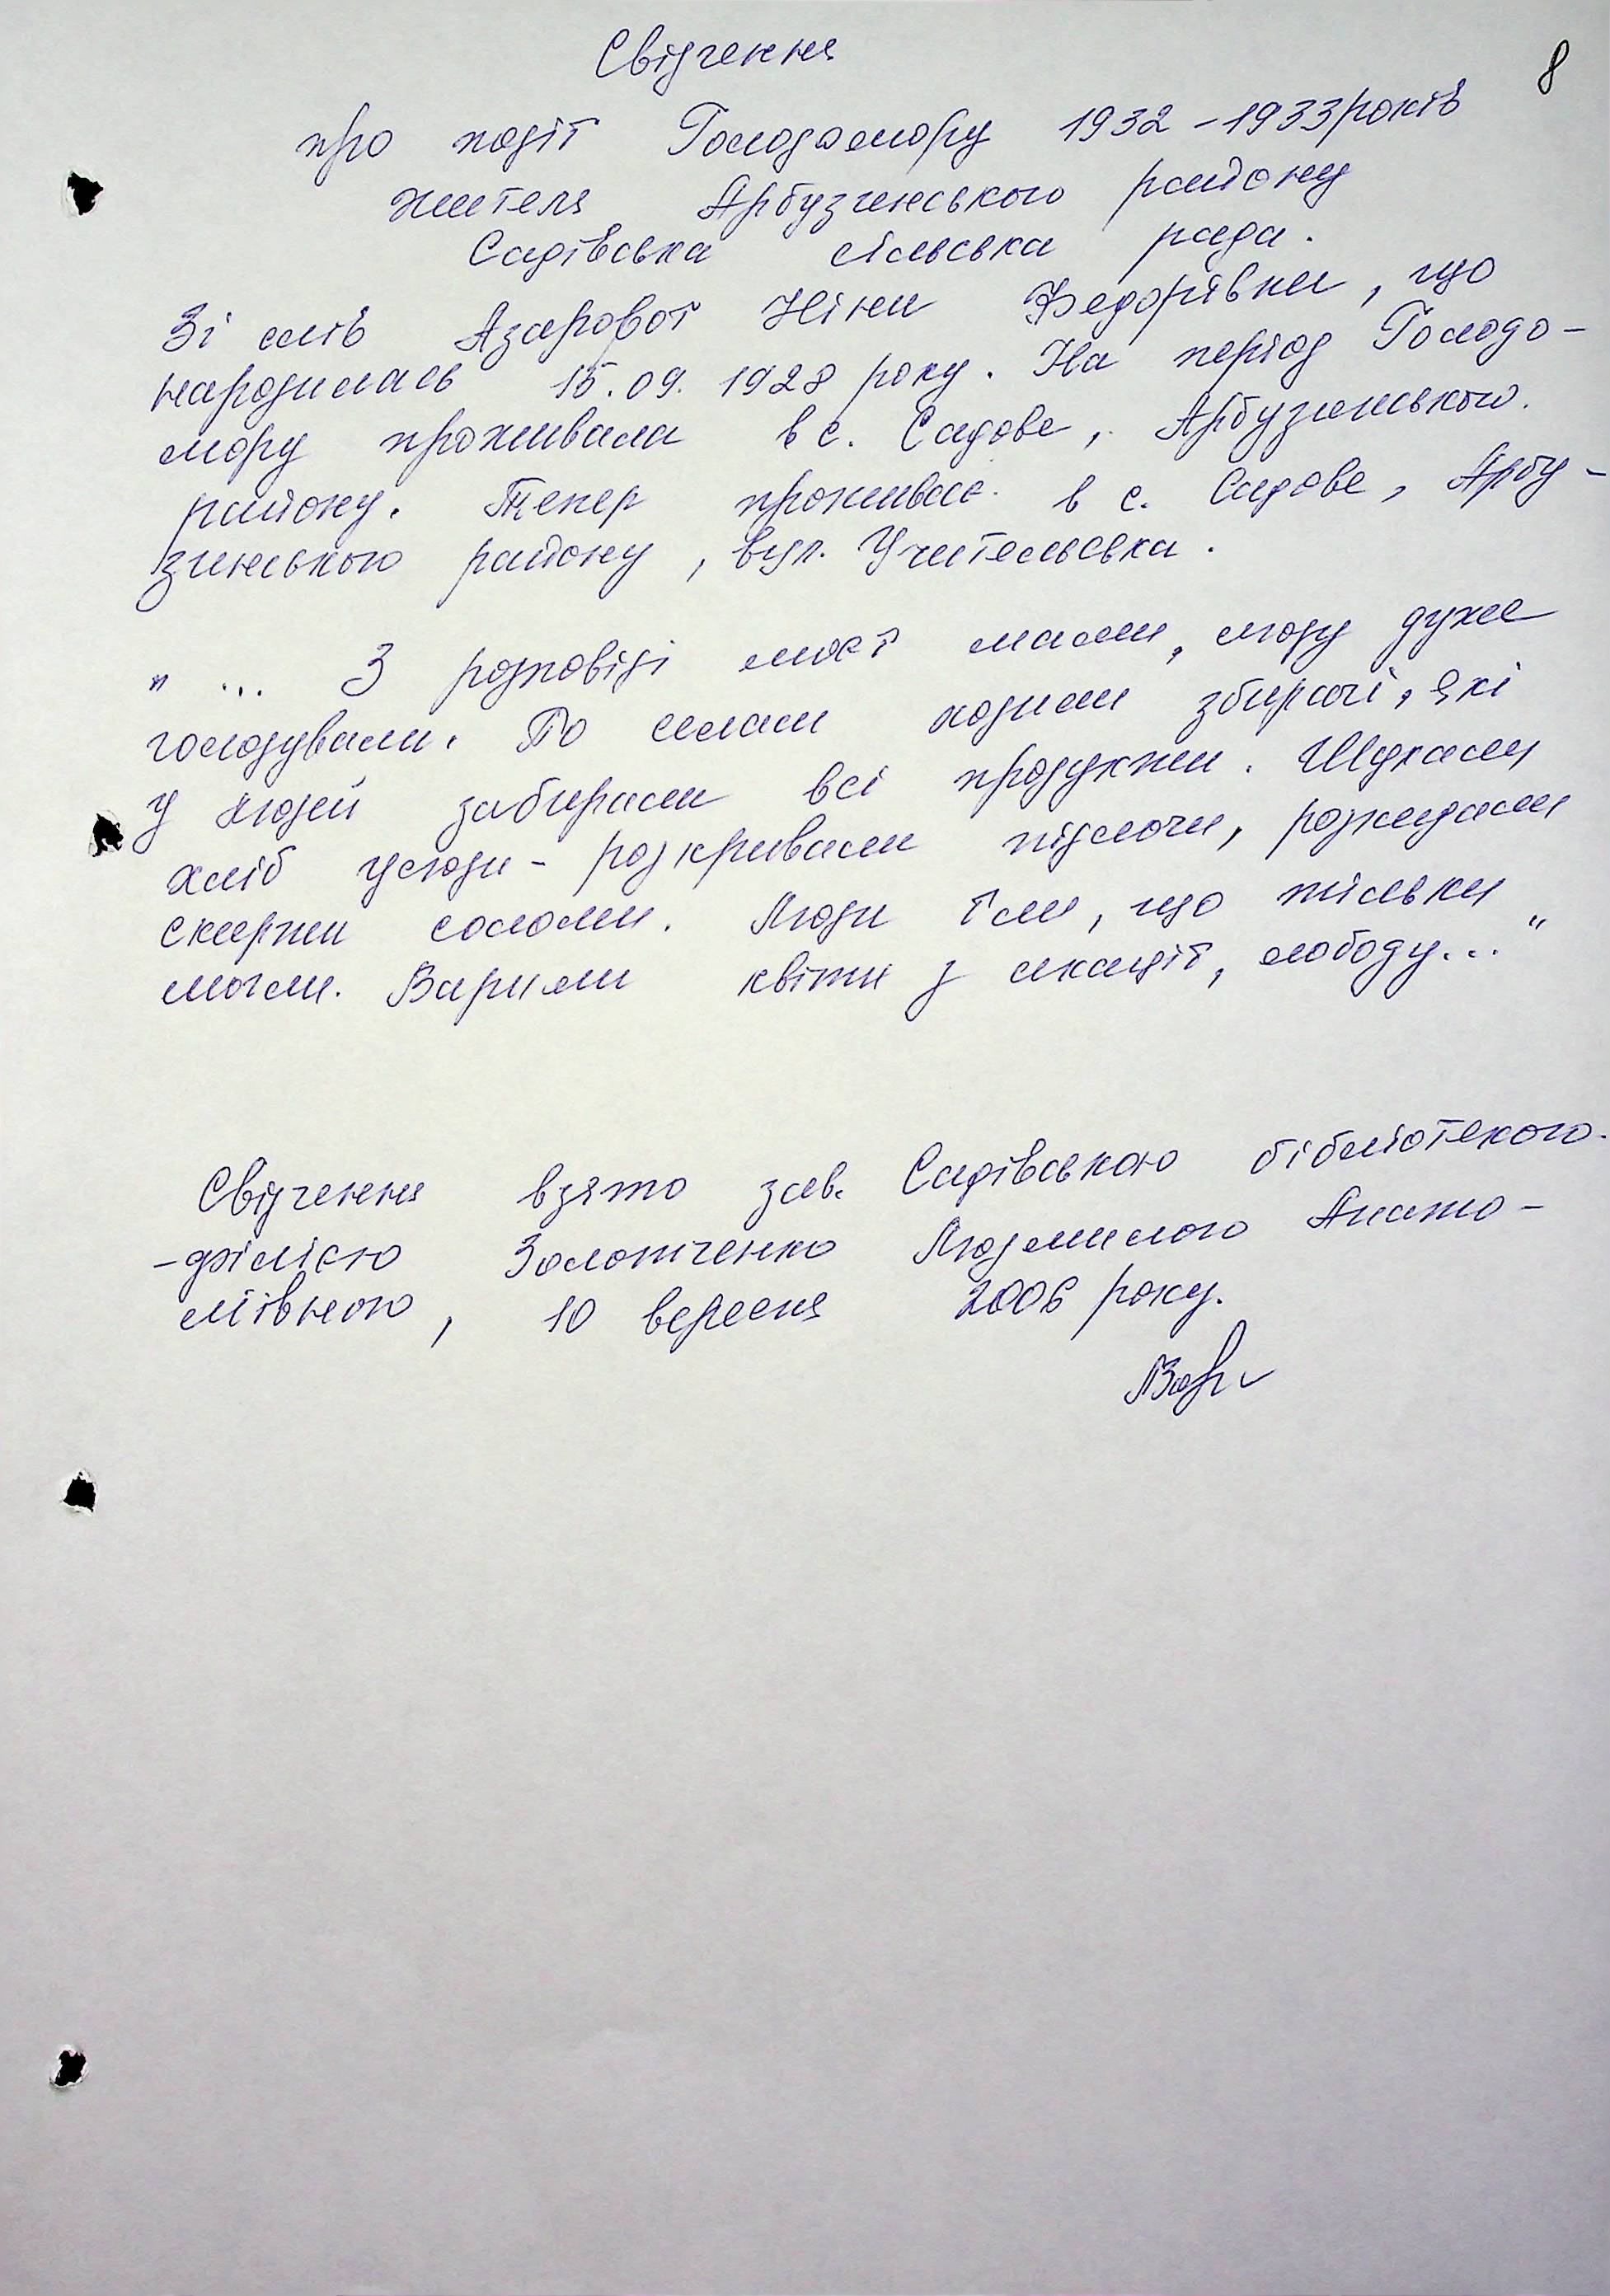 8
Свідчення
про події Голодомору 1932-1933 років
жителя Арбузинського району
Садівська сільська рада.
Зі слів Азарової Ніни Федорівни, що
народилась 15.09.1928 року. На період Голодо-
мору проживала в с. Садове, Арбузинського
району. Тепер проживає в с. Садове, Арбу-
зинського району, вул. Учительська.
" ... З розповіді моєї мами, люди дуже
голодували. По селам ходили збирачі, які
у людей забирали всі продукти. Шукали
хліб усюди - розкривали підлоги, розкидали
скирти соломи. Люди їли, що тільки
могли. Варили квіти з акації, лободу..."
Свідчення взято зав. Садівською бібліотекою-
-філією Золотченко Людмилою Анато-
ліївною, 10 вересня 2006 року.